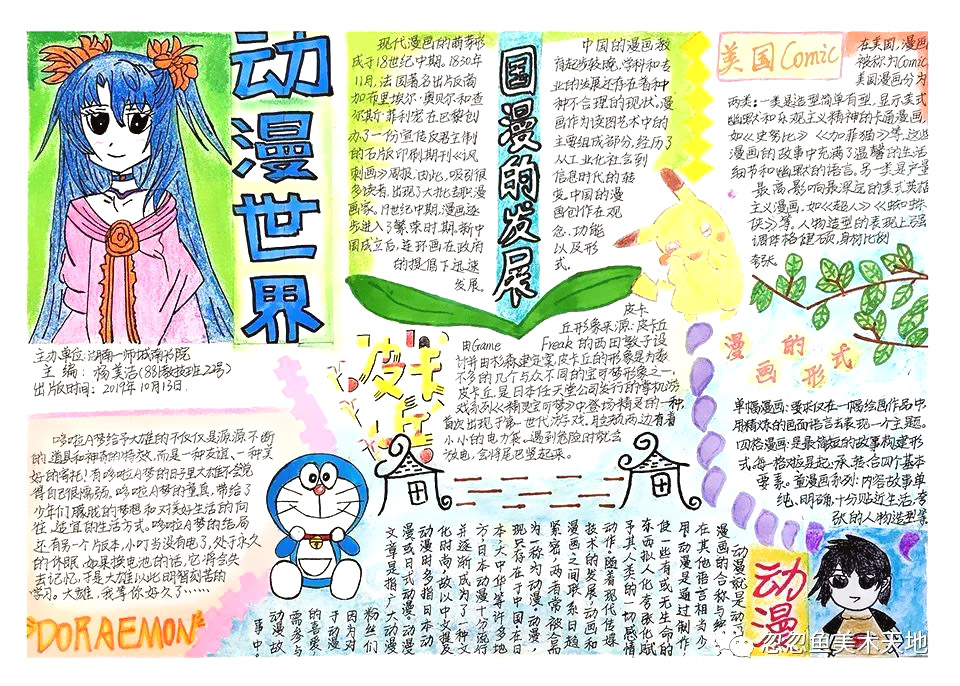 动漫世界
主办单位:湖南一师城南书院
出版时间:2019年10月15日
现代漫画的萌芽形
成于18世纪中期。1830年
11月,法国著名出版商
办了一份宣传反君主制
的石版印刷期刊《讽
刺画》周报。由此,吸引很
多读者,出现了大批专职漫
画家。19世纪中期,漫画逐
步进入了繁荣时期。新中
国成立后,连环画在政府
的提倡下迅速
发展。
国漫的发展
中国的漫画教
育起步较晚,学科和专
业的发展还存在着种
种不合理的现状。漫
画作为读图艺术中的
主要组成部分,经历了
从工业化社会到
信息时代的转
变。中国的漫
画创作在观
念、功能
以及形
式。
美国Comic
在美国,漫画
被称为Comic
美国漫画分为
两类:一类是造型简单有型,显示美式
幽默和乐观主义精神的卡通漫画,
如《史努比》《加菲猫》等,这些
漫画的故事中充满了温馨的生活
细节和幽默的语言。另一类是产量
最高,影响最深远的美式英雄
主义漫画,如《超人》《蜘蛛
侠》等。人物造型的表现上强
调体格健硕,身材比例
夸张
皮卡丘
皮卡
丘形象来源:皮卡丘
由Game Freak的西田敦子设
计并由杉森建定案,皮卡丘的形象是为数
不多的几个与众不同的宝可梦形象之一,
皮卡丘,是日本任天堂公司发行的掌机游
戏系列《精灵宝可梦》中登场精灵的一种,
首次出现于第一世代游戏,且脸颊两边有着
小小的电力袋。遇到危险时就会
放电,会将尾巴竖起来。
漫画的形式
单幅漫画:要求仅在一幅绘画作品中,
用精炼的画面语言去表现一个主题。
四格漫画:是最简短的故事构建形
式,每一格对应是起、承、转、合四个基本
要素。重漫画系列:内容故事单
纯、明确,十分贴近生活,夸
张的人物造型等
哆啦A梦给予大雄的不仅仅是源源不断
的道具和神奇的特效,而是一种友谊、一种美
好的寄托!有哆啦A梦的日子里大雄不会觉
少年们朦胧的梦想和对美好生活的向
往、适宜的生活方式。哆啦A梦的结局
还有另一个版本,小叮当没有电了,处于永久
的休眠,如果换电池的话,它将会失
去记忆,于是大雄从此明智刻苦的
学习。大雄,我等你好久了……
DORAEMON
动漫就是动画和
漫画的合称与缩写
在其他语言相当少
用。动漫是通过制作,
使一些有或无生命的
东西拟人化、夸张化,赋
予其人类的一切感情
动作。随着现代传媒
技术的发展,动画和
漫画之间联系日趋
紧密,两者常被合而
为一称为“动漫”。动漫
现只存在于中国,在日
本、大中华等许多地
方,日本动漫十分流行
并逐渐成为了一种文
化,时间故以中文提及
动漫时多指日本动
漫或日式动漫。动漫
文章是指广大动漫
粉丝们
因为对
于动漫
的喜爱
需参与
动漫故
事中。
动漫
忍忍鱼美术天地